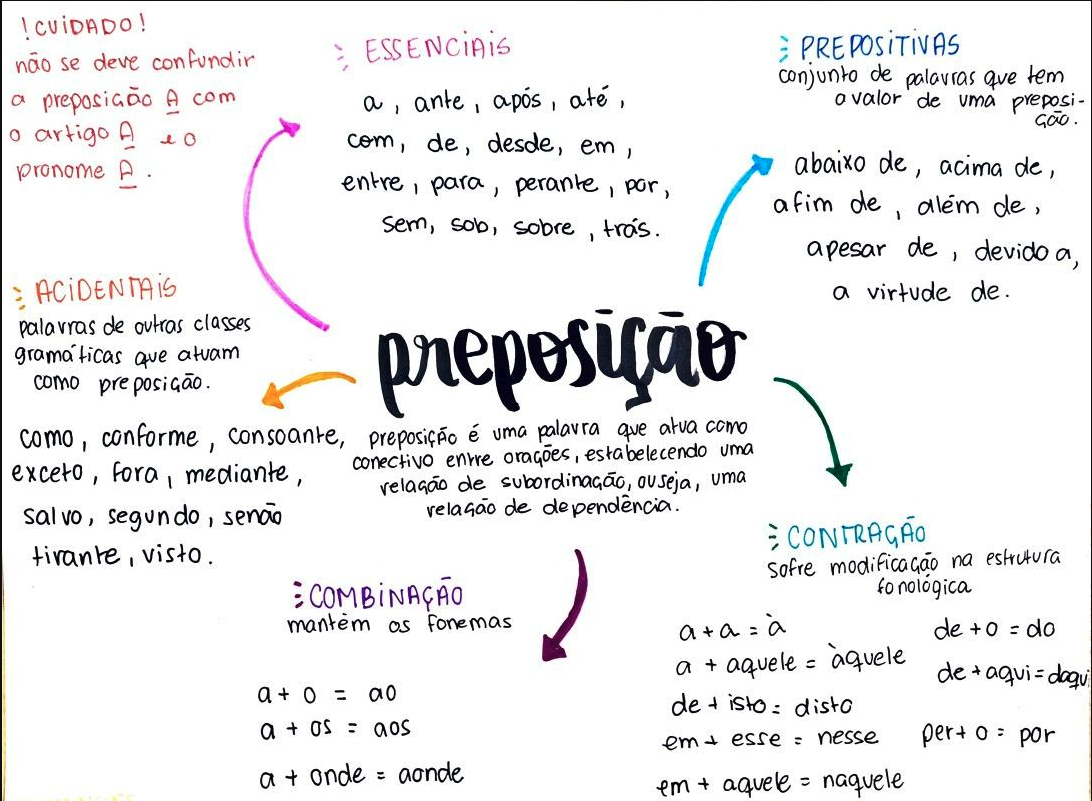 !CUIDADO!
não se deve confundir
a preposição A com
o artigo A e o
pronome A.
ESSENCIAIS
a, ante, após, até,
com, de, desde, em,
entre, para, perante, por,
sem, sob, sobre, trás.
PREPOSITIVAS
conjunto de palavras que tem
o valor de uma preposi-
ção.
abaixo de, acima de,
afim de, além de,
apesar de, devido a,
a virtude de.
ACIDENTAIS
palavras de outras classes
gramáticas que atuam
como preposição.
como, conforme, consoante,
exceto, fora, mediante,
salvo, segundo, senão
tirante, visto.
preposição
preposição é uma palavra que atua como
conectivo entre orações, estabelecendo uma
relação de subordinação, ou seja, uma
relação de dependência.
COMBINAÇÃO
mantèm os fonemas
a + o = ao
a + os = aos
a + onde = aonde
CONTRAÇÃO
sofre modificação na estrutura
fonológica
a + a = à
a + aquele = àquele
de + isto = disto
em + esse = nesse
em + aquele = naquele
de + o = do
de + aqui = daqui
per + o = por